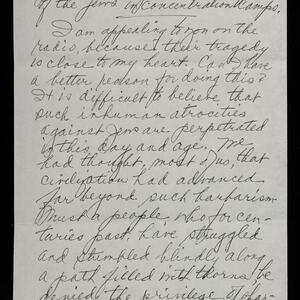 of the Jews in Concentration Camps.
I am appealing to you on the
radio, because their tragedy
is close to my heart. Can I have
a better reason for doing this?
It is difficult to believe that
such inhuman atrocities
against Jews are perpetrated
in this day and age. We
had thought, most of us, that
civilization had advanced
far beyond such barbarism.
Must a people, who for cen-
turies past, have struggled
and stumbled blindly along
a path filled with thorns be
denied the privilege